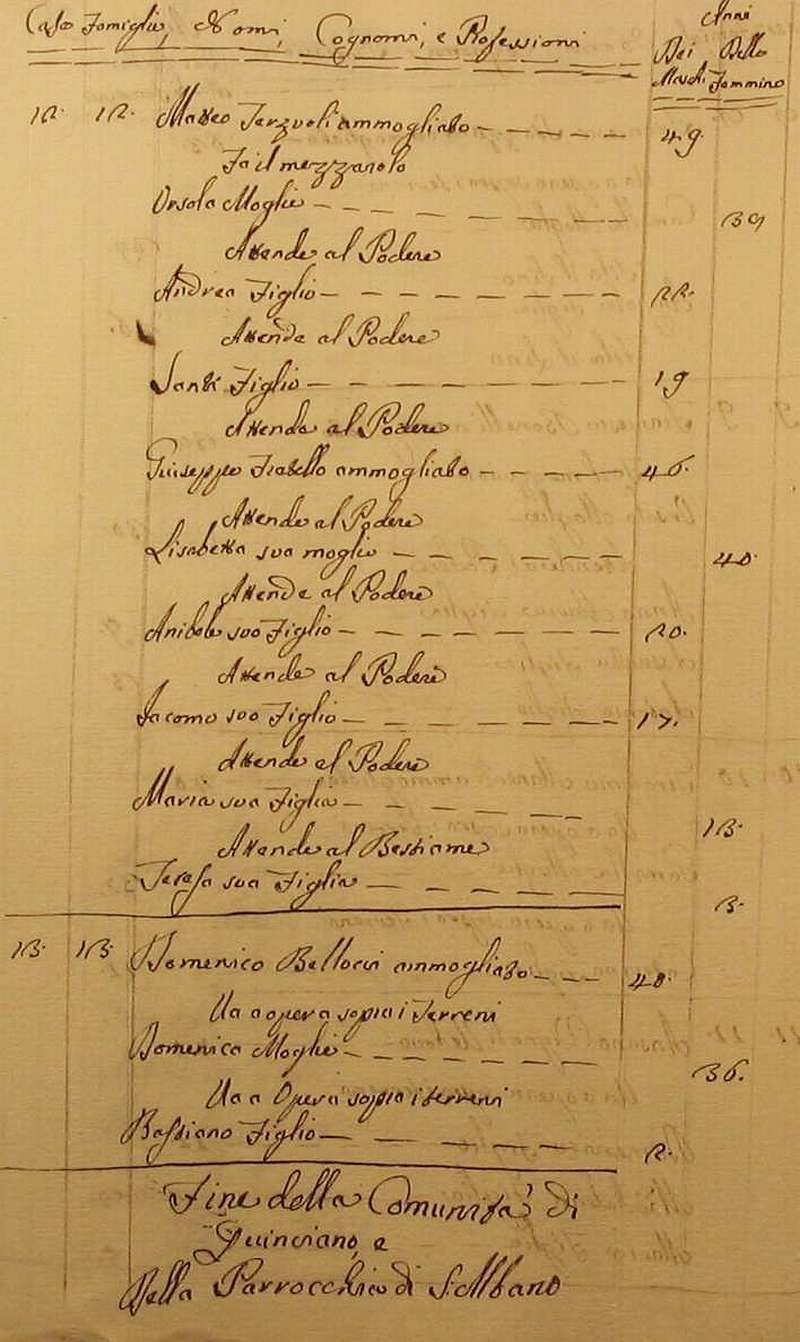 Case Famiglie, Nomi, Cognomi, e Professioni Anni
Dei Delle
Maschi Femmine
12. 12. Matteo ammogliato 49
Fa il mezzarolo
Orsola Moglie 39
Attende al Podere
Andrea Figlio 22.
Attende al Podere
Santi Figlio 19
Attende al Podere
Giuseppe Fratello ammogliato 46
Attende al Podere
Lisabetta sua moglie 40.
Attende al Podere
suo Figlio 20.
Attende al Podere
Jacomo suo Figlio 17.
Attende al Podere
Maria sua Figlia 13.
Attende al Bestiame
Teresa sua Figlia 3.
13. 13. Domenico Bellocci ammogliato 48.
Va a opera sopra i Terreni
Domenica Moglie 36.
Va a Opera sopra i terreni
Bastiano Figlio 2.
Fine della Comunità di
Quinciano, e
Della Parrocchia di S. Albano